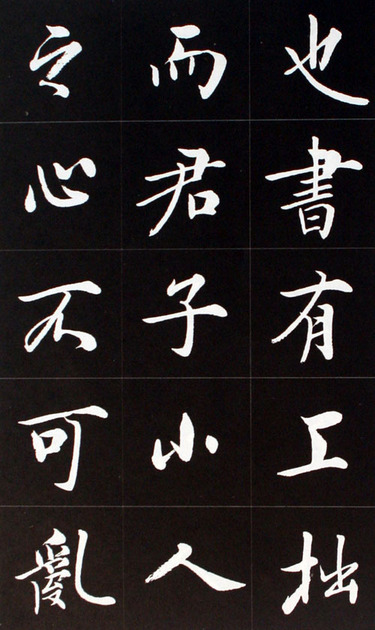 也書有工拙
而君子小人
之心不可亂